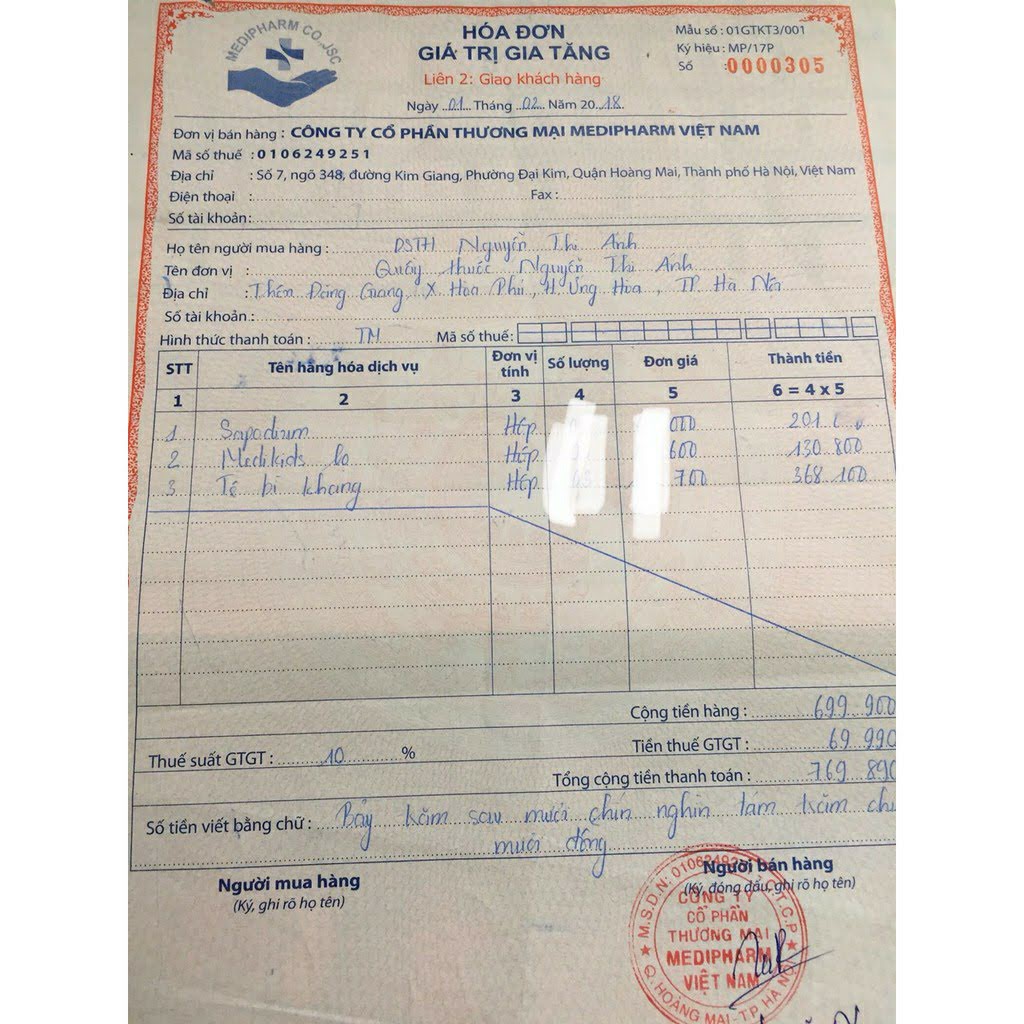 MEDIPHARM CO.,JSC
HÓA ĐƠN
GIÁ TRỊ GIA TĂNG
Liên 2: Giao khách hàng
Ngày 01 Tháng 02 Năm 2018
Mẫu số : 01GTKT3/001
Ký hiệu : MP/17P
Số : 0000305
Đơn vị bán hàng : CÔNG TY CỔ PHẦN THƯƠNG MẠI MEDIPHARM VIỆT NAM
Mã số thuế : 0106249251
Địa chỉ : Số 7, ngõ 348, đường Kim Giang, Phường Đại Kim, Quận Hoàng Mai, Thành phố Hà Nội, Việt Nam
Điện thoại : Fax :
Số tài khoản:
Họ tên người mua hàng : DSTH Nguyễn Thị Ánh
Tên đơn vị : Quầy thuốc Nguyễn Thị Ánh
Địa chỉ : Thôn Đặng Giang, X Hòa Phú, H. Ứng Hòa, TP Hà Nội
Số tài khoản :
Hình thức thanh toán : TM Mã số thuế:
STT Tên hàng hóa dịch vụ Đơn vị tính Số lượng Đơn giá Thành tiền
1 2 3 4 5 6 = 4 x 5
1 Sapodium Hộp 000 201
2 Medikids lo Hộp 600 130 800
3 Tê bì khang Hộp 700 368 100
Cộng tiền hàng : 699 900
Thuế suất GTGT : 10 % Tiền thuế GTGT : 69 990
Tổng cộng tiền thanh toán : 769 890
Số tiền viết bằng chữ : Bảy trăm sáu mươi chín nghìn tám trăm
mươi đồng
Người mua hàng
(Ký, ghi rõ họ tên)
Người bán hàng
(Ký, đóng dấu, ghi rõ họ tên)
CÔNG TY
CỔ PHẦN
THƯƠNG MẠI
MEDIPHARM
VIỆT NAM
Q. HOÀNG MAI - TP HÀ NỘI